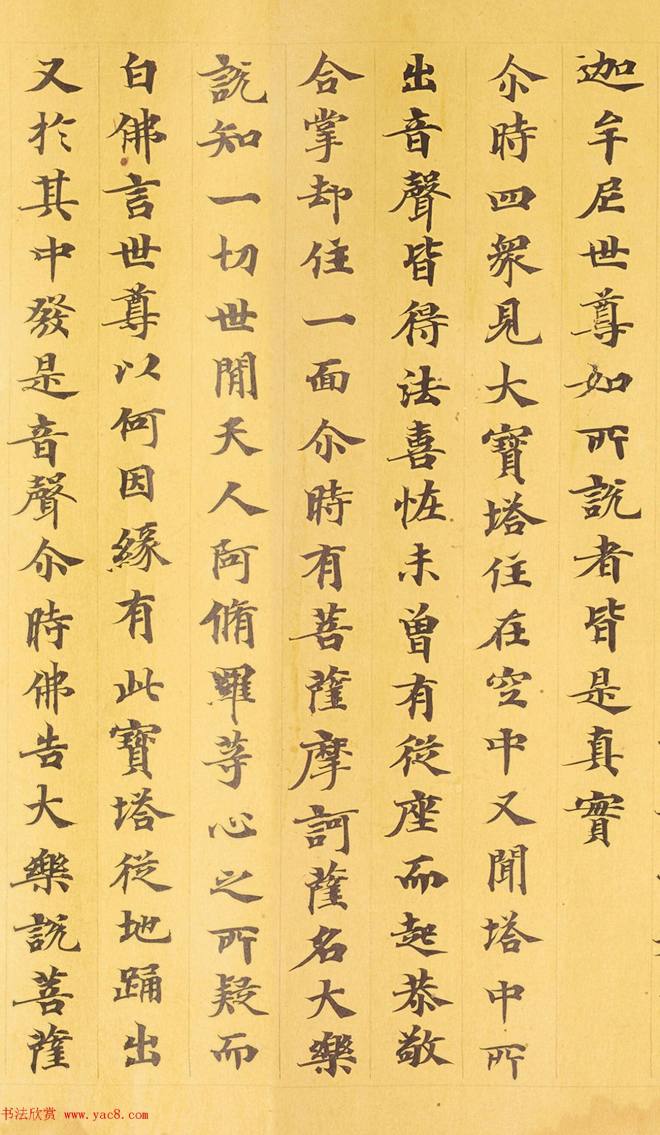 迦牟尼世尊如所說者皆是真實
尒時四衆見大寶塔住在空中又聞塔中所
出音聲皆得法喜恠未曾有從座而起恭敬
合掌却住一面尒時有菩薩摩訶薩名大樂
說知一切世間天人阿脩羅等心之所疑而
白佛言世尊以何因緣有此寶塔從地踊出
又於其中發是音聲尒時佛告大樂說菩薩
书法欣赏 www.yac8.com